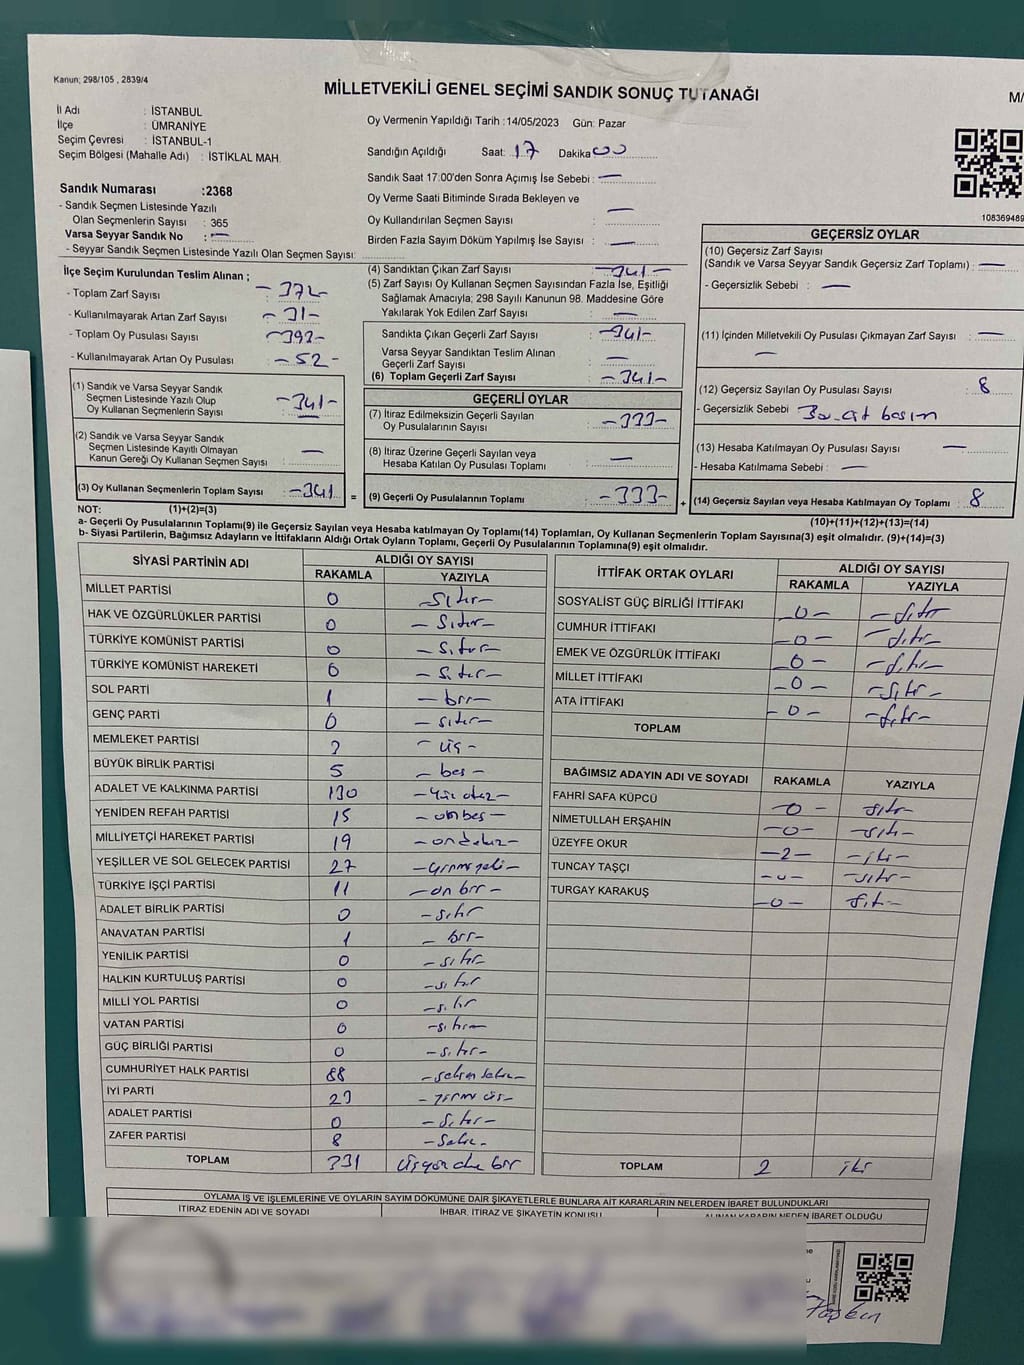 Kanun; 298/105 , 2839/4
MİLLETVEKİLİ GENEL SEÇİMİ SANDIK SONUÇ TUTANAĞI
M/
İl Adı : İSTANBUL
İlçe : ÜMRANİYE
Seçim Çevresi : İSTANBUL-1
Seçim Bölgesi (Mahalle Adı) : İSTİKLAL MAH.
Oy Vermenin Yapıldığı Tarih :14/05/2023 Gün: Pazar
Sandığın Açıldığı Saat: 17 Dakika 00
Sandık Saat 17:00'den Sonra Açımış İse Sebebi : —
Oy Verme Saati Bitiminde Sırada Bekleyen ve
Oy Kullandırılan Seçmen Sayısı : —
Birden Fazla Sayım Döküm Yapılmış İse Sayısı : —
Sandık Numarası :2368
- Sandık Seçmen Listesinde Yazılı
Olan Seçmenlerin Sayısı : 365
Varsa Seyyar Sandık No : —
- Seyyar Sandık Seçmen Listesinde Yazılı Olan Seçmen Sayısı:
108369489
İlçe Seçim Kurulundan Teslim Alınan ;
- Toplam Zarf Sayısı - 372 -
- Kullanılmayarak Artan Zarf Sayısı - 31 -
- Toplam Oy Pusulası Sayısı - 393 -
- Kullanılmayarak Artan Oy Pusulası - 52 -
(1) Sandık ve Varsa Seyyar Sandık
Seçmen Listesinde Yazılı Olup
Oy Kullanan Seçmenlerin Sayısı - 341 -
(2) Sandık ve Varsa Seyyar Sandık
Seçmen Listesinde Kayıtlı Olmayan
Kanun Gereği Oy Kullanan Seçmen Sayısı : —
(3) Oy Kullanan Seçmenlerin Toplam Sayısı - 341
(1)+(2)=(3)
(4) Sandıktan Çıkan Zarf Sayısı - 341 -
(5) Zarf Sayısı Oy Kullanan Seçmen Sayısından Fazla İse, Eşitliği
Sağlamak Amacıyla; 298 Sayılı Kanunun 98. Maddesine Göre
Yakılarak Yok Edilen Zarf Sayısı : —
Sandıkta Çıkan Geçerli Zarf Sayısı - 341 -
Varsa Seyyar Sandıktan Teslim Alınan
Geçerli Zarf Sayısı : —
(6) Toplam Geçerli Zarf Sayısı - 341 -
GEÇERLİ OYLAR
(7) İtiraz Edilmeksizin Geçerli Sayılan
Oy Pusulalarının Sayısı - 333 -
(8) İtiraz Üzerine Geçerli Sayılan veya
Hesaba Katılan Oy Pusulası Toplamı : —
= (9) Geçerli Oy Pusulalarının Toplamı - 333 -
GEÇERSİZ OYLAR
(10) Geçersiz Zarf Sayısı
(Sandık ve Varsa Seyyar Sandık Geçersiz Zarf Toplamı) : —
- Geçersizlik Sebebi : —
(11) İçinden Milletvekili Oy Pusulası Çıkmayan Zarf Sayısı : —
—
(12) Geçersiz Sayılan Oy Pusulası Sayısı : 8
- Geçersizlik Sebebi
(13) Hesaba Katılmayan Oy Pusulası Sayısı : —
- Hesaba Katılmama Sebebi : —
+ (14) Geçersiz Sayılan veya Hesaba Katılmayan Oy Toplamı : 8
(10)+(11)+(12)+(13)=(14)
NOT:
a- Geçerli Oy Pusulalarının Toplamı(9) ile Geçersiz Sayılan veya Hesaba katılmayan Oy Toplamı(14) Toplamları, Oy Kullanan Seçmenlerin Toplam Sayısına(3) eşit olmalıdır. (9)+(14)=(3)
b- Siyasi Partilerin, Bağımsız Adayların ve İttifakların Aldığı Ortak Oyların Toplamı, Geçerli Oy Pusulalarının Toplamına(9) eşit olmalıdır.
SİYASİ PARTİNİN ADI ALDIĞI OY SAYISI
RAKAMLA YAZIYLA
MİLLET PARTİSİ 0 sıfır -
HAK VE ÖZGÜRLÜKLER PARTİSİ 0 - sıfır -
TÜRKİYE KOMÜNİST PARTİSİ 0 - sıfır -
TÜRKİYE KOMÜNİST HAREKETİ 0 - sıfır -
SOL PARTİ 1 - bir -
GENÇ PARTİ 0 - sıfır -
MEMLEKET PARTİSİ 3 - üç -
BÜYÜK BİRLİK PARTİSİ 5 - beş -
ADALET VE KALKINMA PARTİSİ 130 - yüz otuz -
YENİDEN REFAH PARTİSİ 15 - onbeş -
MİLLİYETÇİ HAREKET PARTİSİ 19 - ondokuz -
YEŞİLLER VE SOL GELECEK PARTİSİ 27 - yirmi yedi -
TÜRKİYE İŞÇİ PARTİSİ 11 - on bir -
ADALET BİRLİK PARTİSİ 0 - sıfır
ANAVATAN PARTİSİ 1 - bir -
YENİLİK PARTİSİ 0 - sıfır -
HALKIN KURTULUŞ PARTİSİ 0 - sıfır
MİLLİ YOL PARTİSİ 0 - sıfır
VATAN PARTİSİ 0 - sıfır -
GÜÇ BİRLİĞİ PARTİSİ 0 - sıfır -
CUMHURİYET HALK PARTİSİ 88 - seksen sekiz -
İYİ PARTİ 23 - yirmi üç -
ADALET PARTİSİ 0 - sıfır -
ZAFER PARTİSİ 8 - sekiz -
TOPLAM 331 üçyüz otuz bir
İTTİFAK ORTAK OYLARI ALDIĞI OY SAYISI
RAKAMLA YAZIYLA
SOSYALİST GÜÇ BİRLİĞİ İTTİFAKI - 0 - - sıfır
CUMHUR İTTİFAKI - 0 - - sıfır -
EMEK VE ÖZGÜRLÜK İTTİFAKI - 0 - - sıfır -
MİLLET İTTİFAKI - 0 - - sıfır -
ATA İTTİFAKI - 0 - - sıfır -
TOPLAM
BAĞIMSIZ ADAYIN ADI VE SOYADI RAKAMLA YAZIYLA
FAHRİ SAFA KÜPCÜ - 0 - sıfır -
NİMETULLAH ERŞAHİN - 0 - - sıfır -
ÜZEYFE OKUR - 2 - - iki -
TUNCAY TAŞÇI - 0 - - sıfır -
TURGAY KARAKUŞ - 0 - sıfır -
TOPLAM 2 iki
OYLAMA İŞ VE İŞLEMLERİNE VE OYLARIN SAYIM DÖKÜMÜNE DAİR ŞİKAYETLERLE BUNLARA AİT KARARLARIN NELERDEN İBARET BULUNDUKLARI
İTİRAZ EDENİN ADI VE SOYADI İHBAR, İTİRAZ VE ŞİKAYETİN KONUSU ALINAN KARARIN NEDEN İBARET OLDUĞU